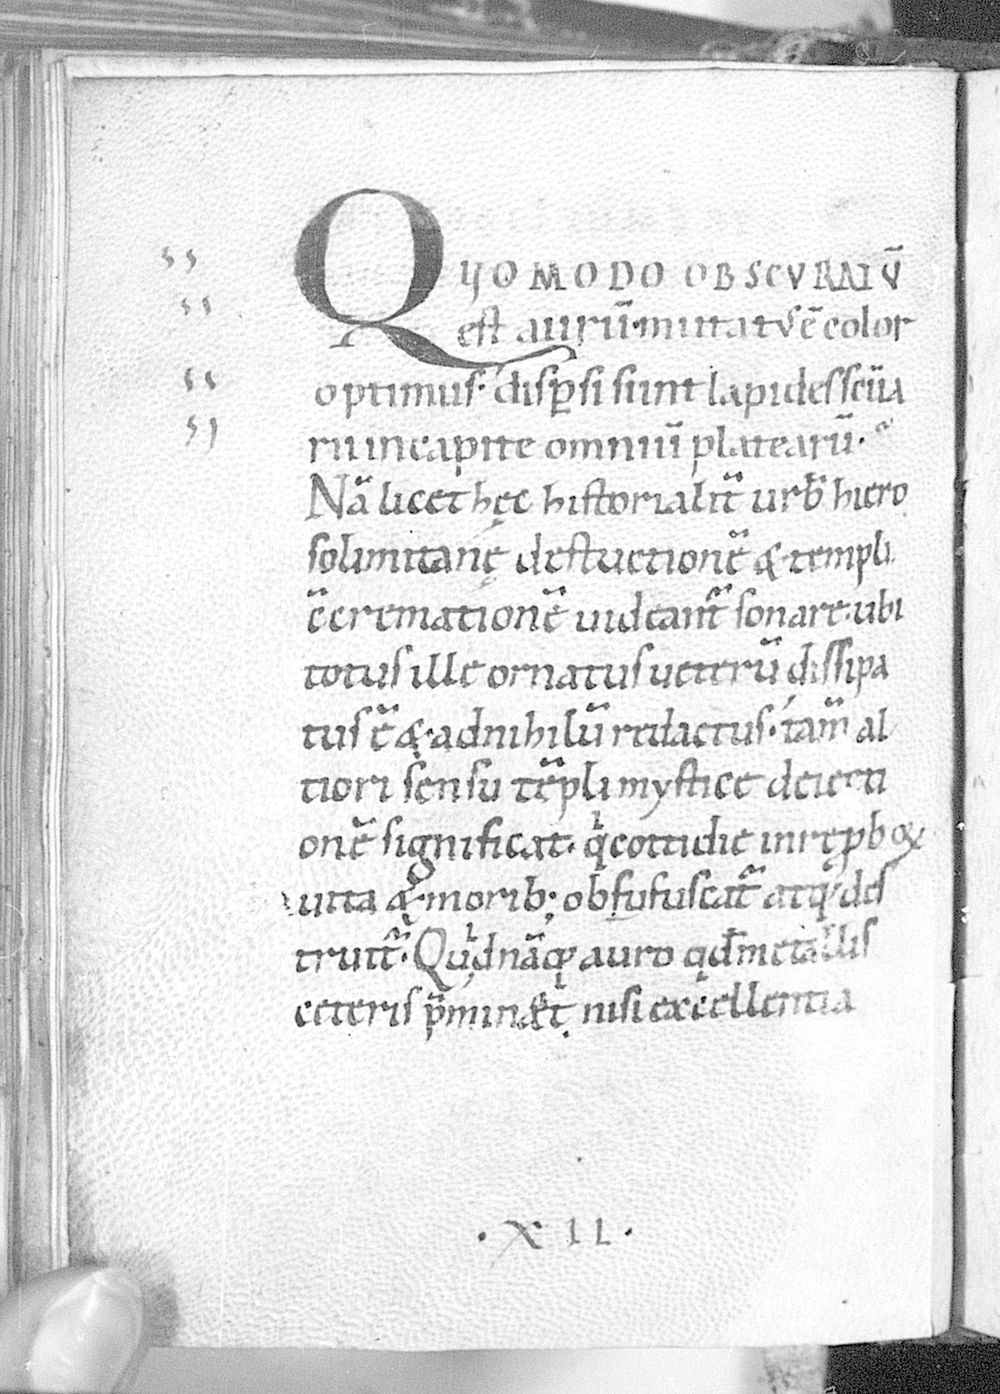 QUOMODO OBSCVRATŪ
est aurū· mutatus ē color
optimus· disꝑsi sunt lapides scũa
rii in capite omniū platearū·
Nā licet hęc historialit̄ urb̄ hiero
solimitanę destuctionē & templi
ēcrematione᷉ uideant̄ sonare· ubi
totus ille ornatus ueterū dissipa
tus ē & ad nihilū redactus· tam̄ al
tiori sensu tēpli mystice deiecti
onē significat· q̇ cottidie in reproboꝝ
uita & morib; obfufuscat̄ atq; des
truit̄· Quid nāq; auro qd̄ metallis
ceteris p̄minet nisi excellentia
· XII ·